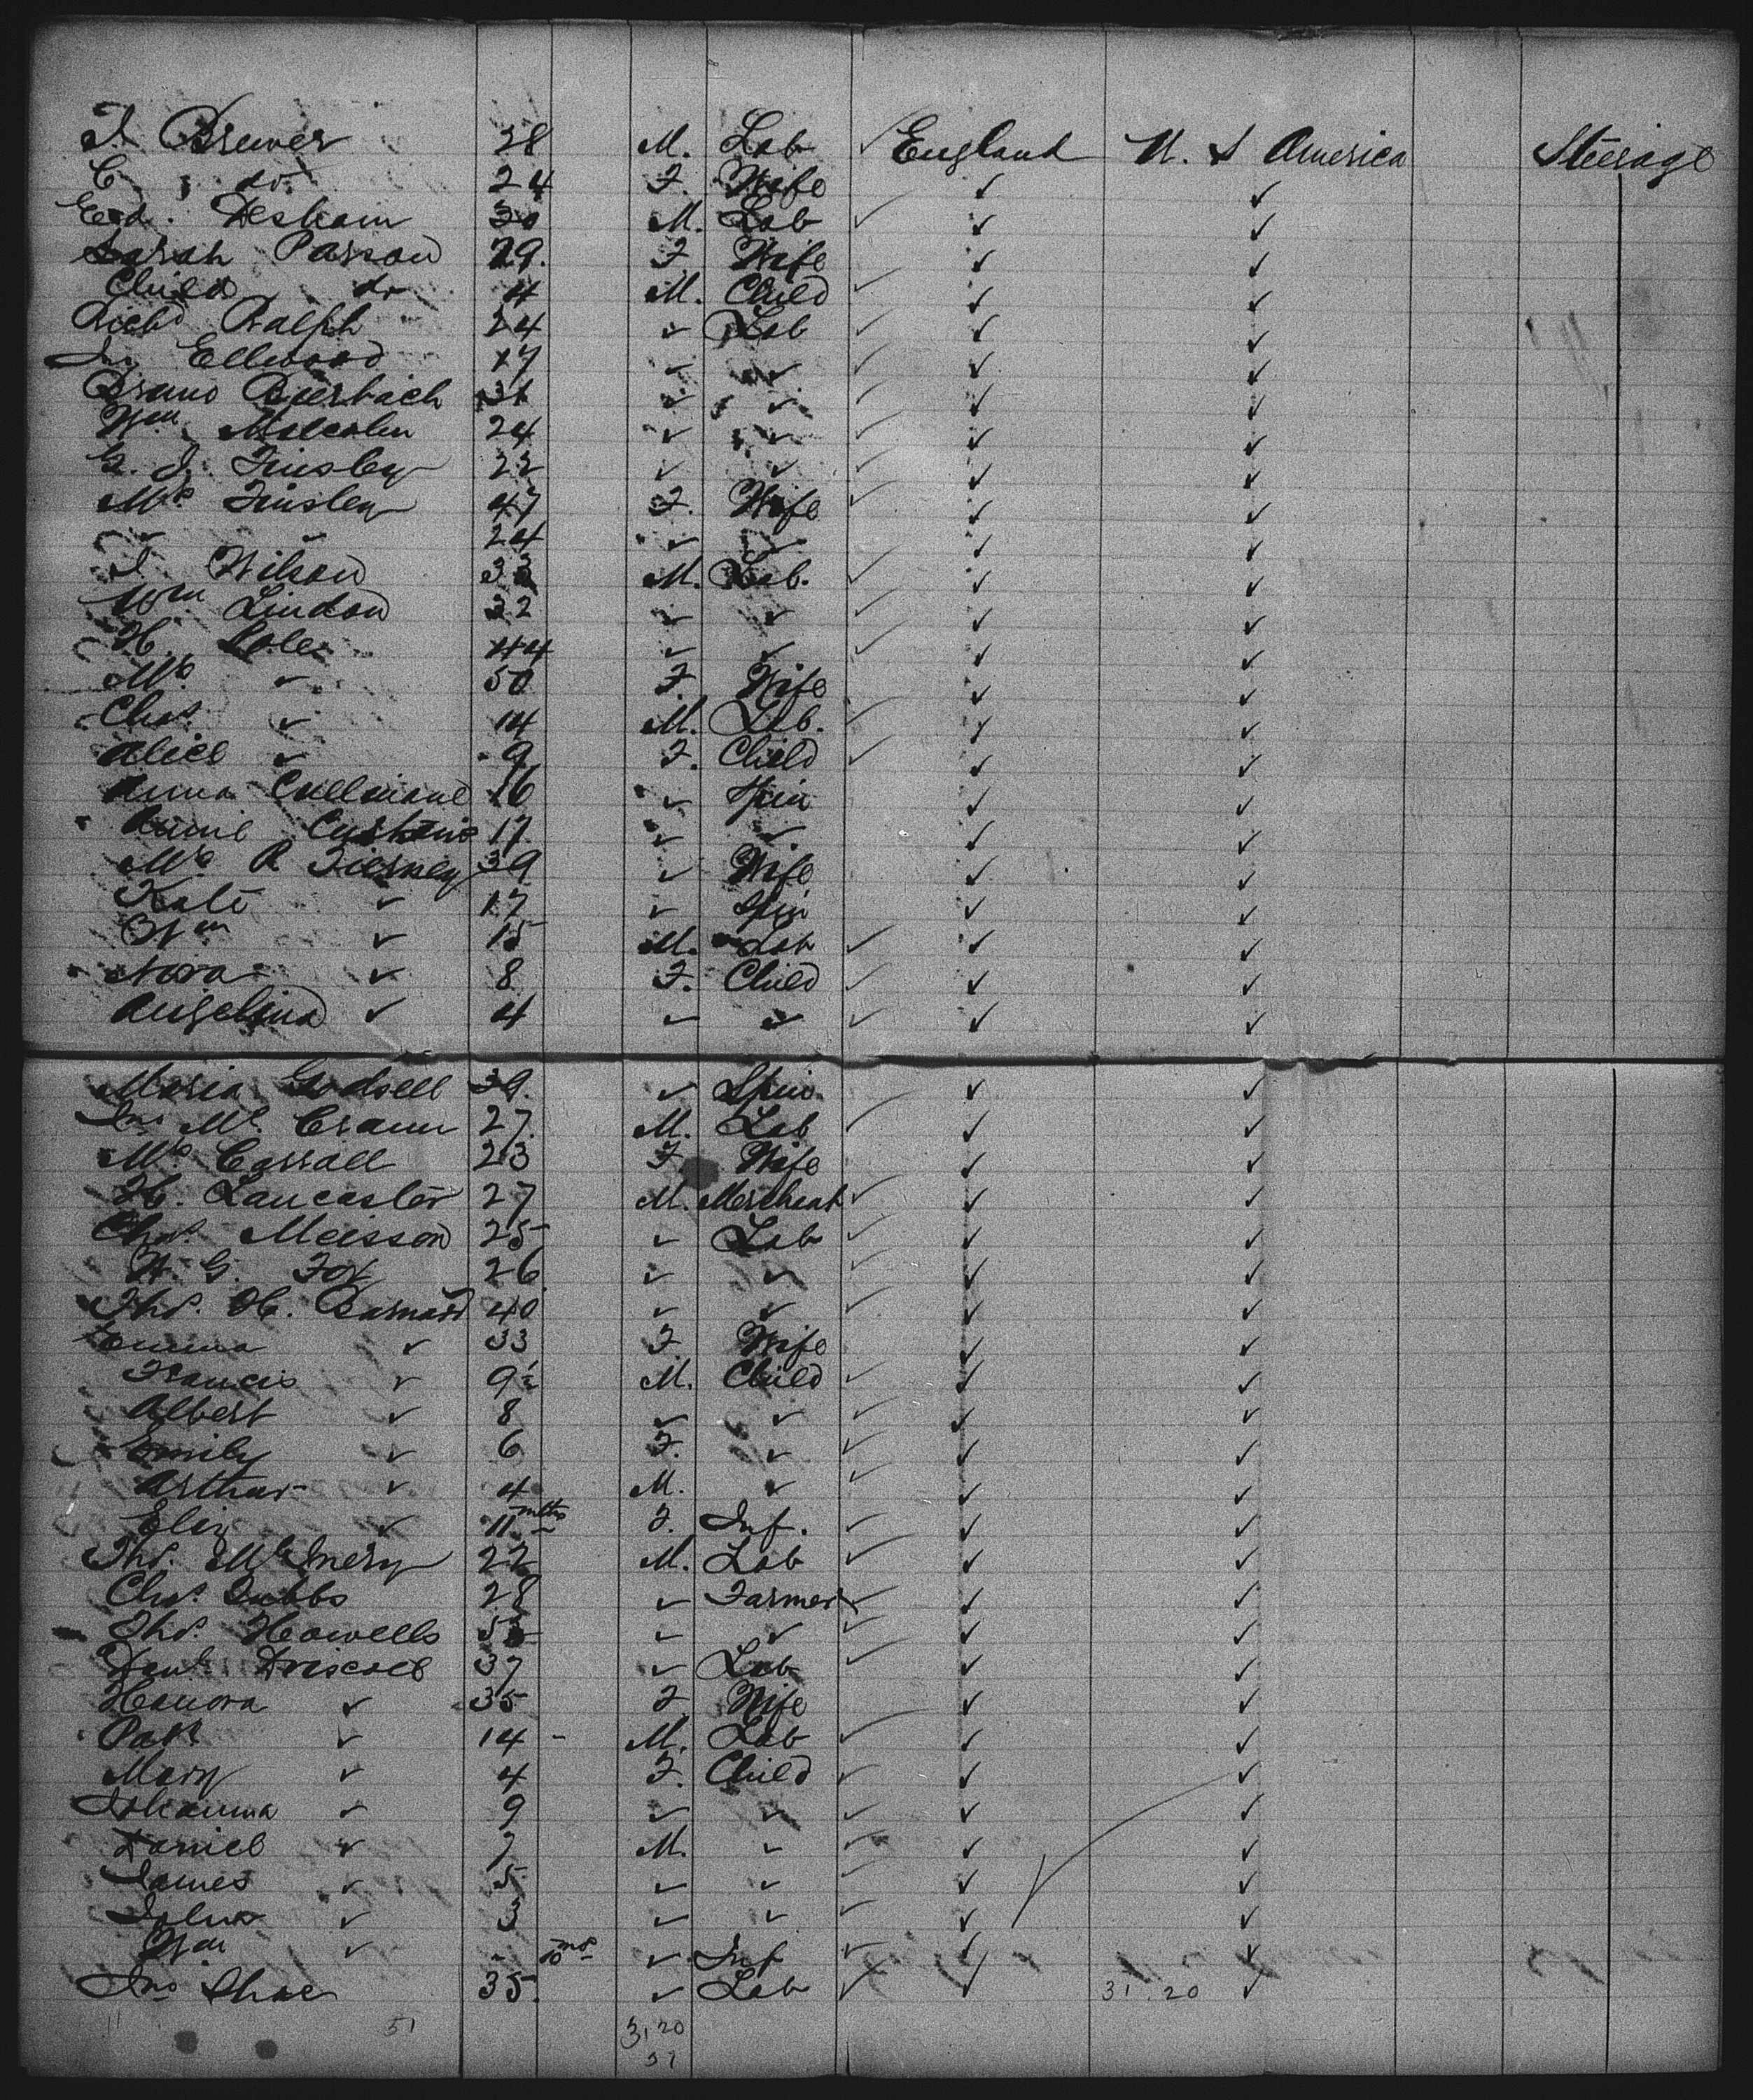 J. Brewer 38 M. Lab ✓ England U. S America Steerage
C do 24 F. Wife ✓ ✓
Ed. Desham 30 M. Lab ✓ ✓ ✓
Sarah Parson 29. F Wife ✓ ✓
Child do 4 M. Child ✓ ✓ ✓
Richd Ralph 24 ✓ Lab ✓ ✓ ✓
Jno Ellwood 17 ✓ ✓ ✓ ✓ ✓
Bruno Bierbach 31 ✓ ✓ ✓ ✓ ✓
Wm Malcolm 24 ✓ ✓ ✓ ✓ ✓
G. J. Tinsley 22 ✓ ✓ ✓ ✓ ✓
Mrs Tinsley 47 F. Wife ✓ ✓ ✓
✓ ✓ 24 ✓ ✓ ✓ ✓
J Wilson 33 M. Lab. ✓ ✓ ✓
Wm Lindon 32 ✓ ✓ ✓ ✓ ✓
H. Cole 44 ✓ ✓ ✓ ✓ ✓
Mrs ✓ 50 F. Wife ✓ ✓
Chas. ✓ 14 M. Lab. ✓ ✓ ✓
Alice ✓ 9 F. Child ✓ ✓ ✓
Anna Cullinane 16 ✓ Spin ✓ ✓
Annie 17. ✓ ✓ ✓ ✓
Mrs R Tierney 39 ✓ Wife ✓ ✓
Kate ✓ 17 ✓ Spin ✓ ✓
Wm ✓ 15 M. Lab ✓ ✓ ✓
Nora ✓ 8 F. Child ✓ ✓ ✓
Angelina ✓ 4 ✓ ✓ ✓ ✓ ✓
Maria Godsell 39. ✓ Spin. ✓ ✓
Jno Mc Crann 27. M. Lab ✓ ✓ ✓
Mrs Carrall 23 F Wife ✓ ✓
H. Lancaster 27 M. Merchant ✓ ✓ ✓
Chas. Meisson 25 ✓ Lab ✓ ✓ ✓
W. G. Fox 26 ✓ ✓ ✓ ✓ ✓
Thos. H. Barnard 40 ✓ ✓ ✓ ✓ ✓
Emma ✓ 33 F. Wife ✓ ✓
Francis ✓ 9½ M. Child ✓ ✓ ✓
Albert ✓ 8 ✓ ✓ ✓ ✓ ✓
Emily ✓ 6 F. ✓ ✓ ✓ ✓
Arthur ✓ 4 M. ✓ ✓ ✓ ✓
Eliz ✓ 11 mths F. Inf. ✓ ✓ ✓
Thos. McInery 22 M. Lab ✓ ✓ ✓
Chas. Gubbs 28 ✓ Farmer ✓ ✓ ✓
Thos. Howells 53 ✓ ✓ ✓ ✓ ✓
Danl. Driscoll 37 ✓ Lab ✓ ✓ ✓
Honora ✓ 35 F. Wife ✓ ✓
Patk ✓ 14 - M. Lab ✓ ✓ ✓
Mary ✓ 4 F. Child ✓ ✓ ✓
Johanna ✓ 9 ✓ ✓ ✓ ✓ ✓
Daniel ✓ 7 M. ✓ ✓ ✓ ✓
James ✓ 5 ✓ ✓ ✓ ✓ ✓
John ✓ 3 ✓ ✓ ✓ ✓ ✓
Wm ✓ - 10 ms ✓ Inf ✓ ✓ ✓
Jno Shae 35. ✓ Lab ✓ ✓ 31. 20 ✓
51 31 20
51